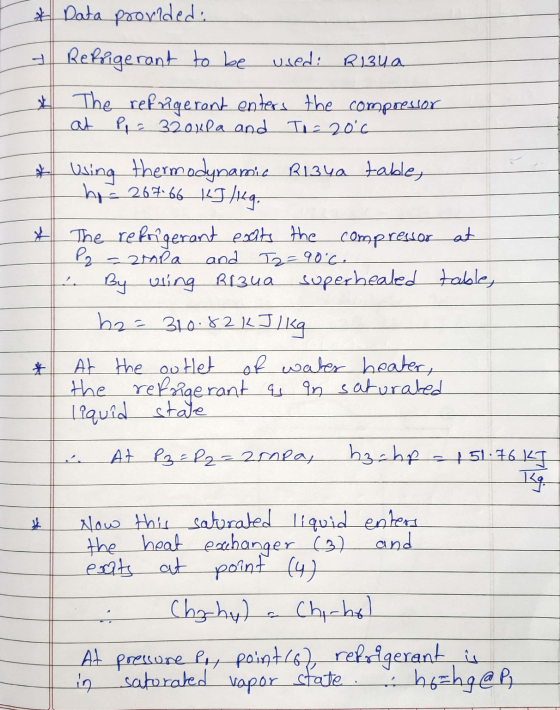 * Data provided:
→ Refrigerant to be used: R134a
* The refrigerant enters the compressor
at P₁ = 320kPa and T₁ = 20°C
* Using thermodynamic R134a table,
h₁ = 267.66 KJ/kg.
* The refrigerant exits the compressor at
P₂ = 2mPa and T₂ = 90°C.
∴ By using R134a superheated table,
h₂ = 310.82 KJ/kg
* At the outlet of water heater,
the refrigerant is in saturated
liquid state
∴ At P₃ = P₂ = 2mPa, h₃ = hf = 151.76 KJ/Kg.
* Now this saturated liquid enters
the heat exchanger (3) and
exits at point (4)
∴ (h₃-h₄) = (h₁-h₆)
At pressure P₁, point(6), refrigerant is
in saturated vapor state. ∴ h₆=hg@P₁